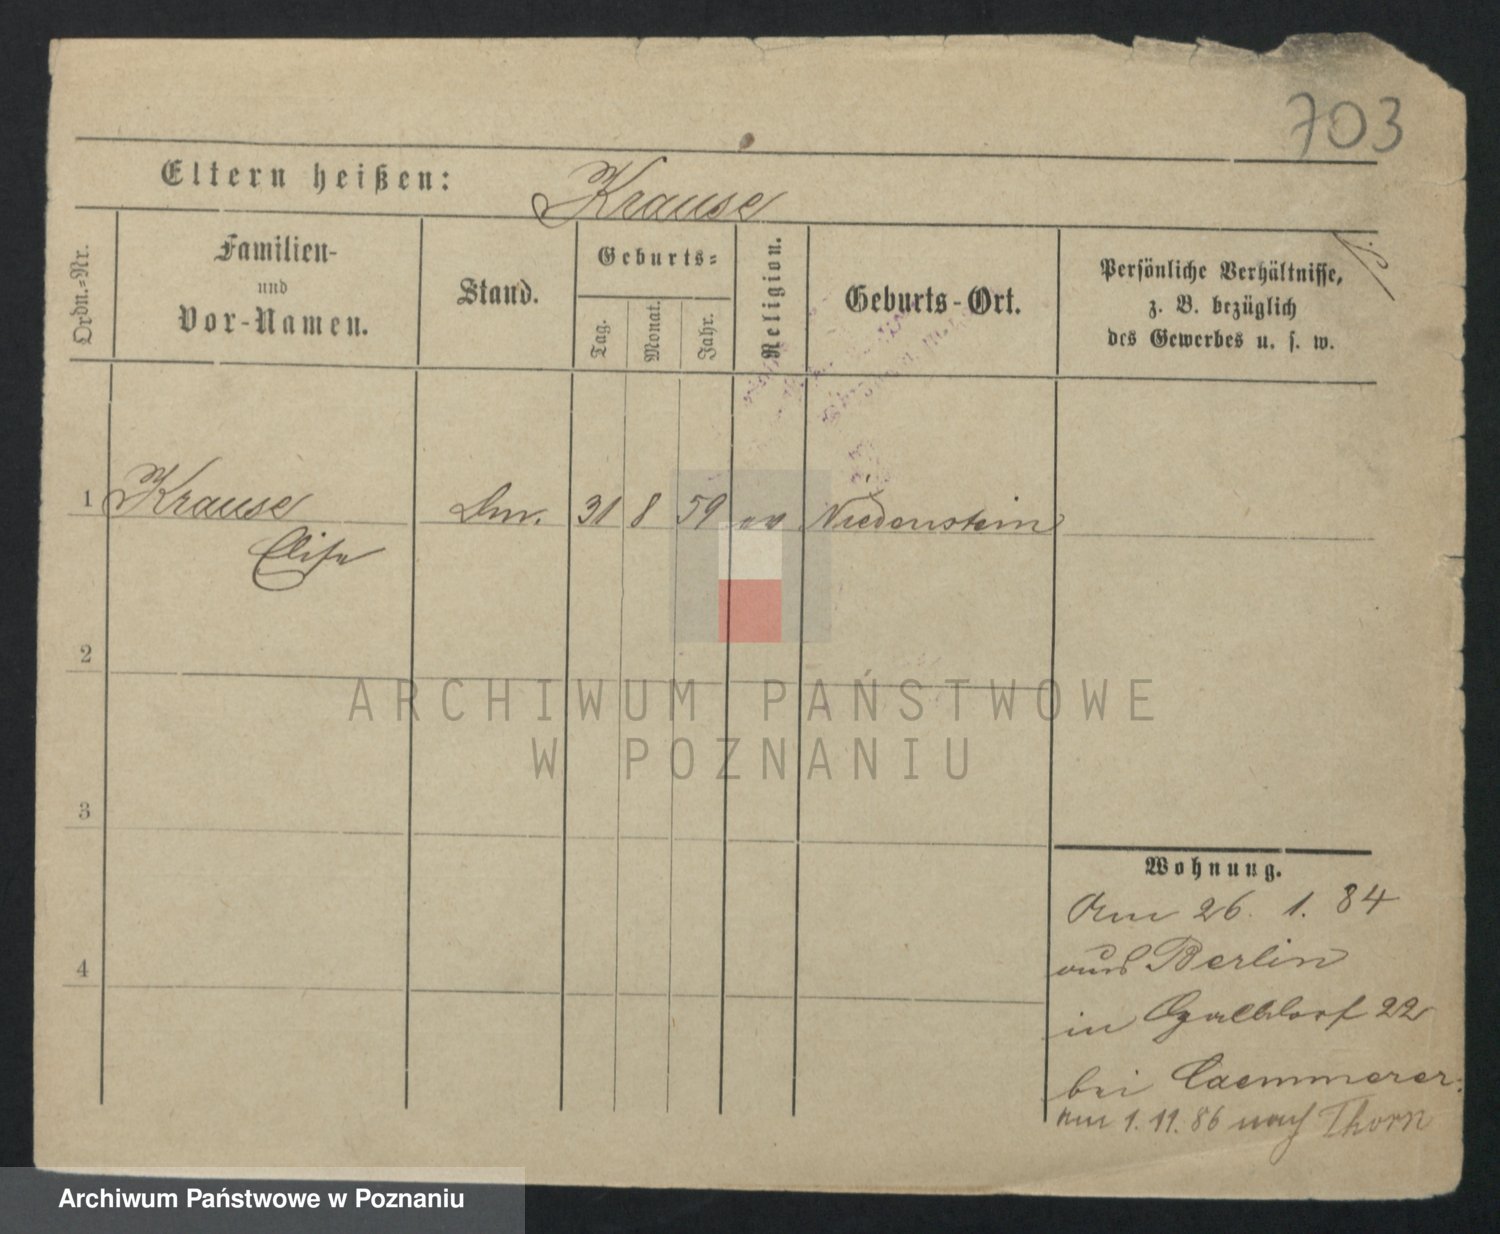 703
Eltern heißen: Krause
Ordn.=Nr.
Familien-
und
Vor-Namen.
Stand.
Geburts=
Tag.
Monat.
Jahr.
Religion.
Geburts-Ort.
Persönliche Verhältnisse,
z. B. bezüglich
des Gewerbes u. s. w.
1 Krause 31 8 59 ev Niedenstein
Elise
2
3
4
Wohnung.
Am 26. 1. 84
aus Berlin
in 22
bei Caemmerer.
am 1. 11. 86 nach Thorn
ARCHIWUM PAŃSTWOWE
W POZNANIU
Archiwum Państwowe w Poznaniu